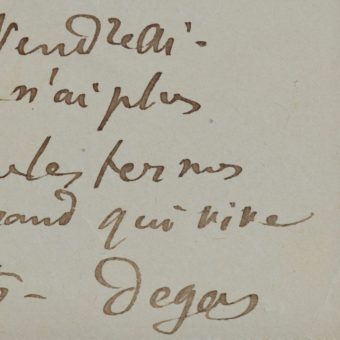 Vendredi.
n'ai plus
les termes
rand qui
Degas